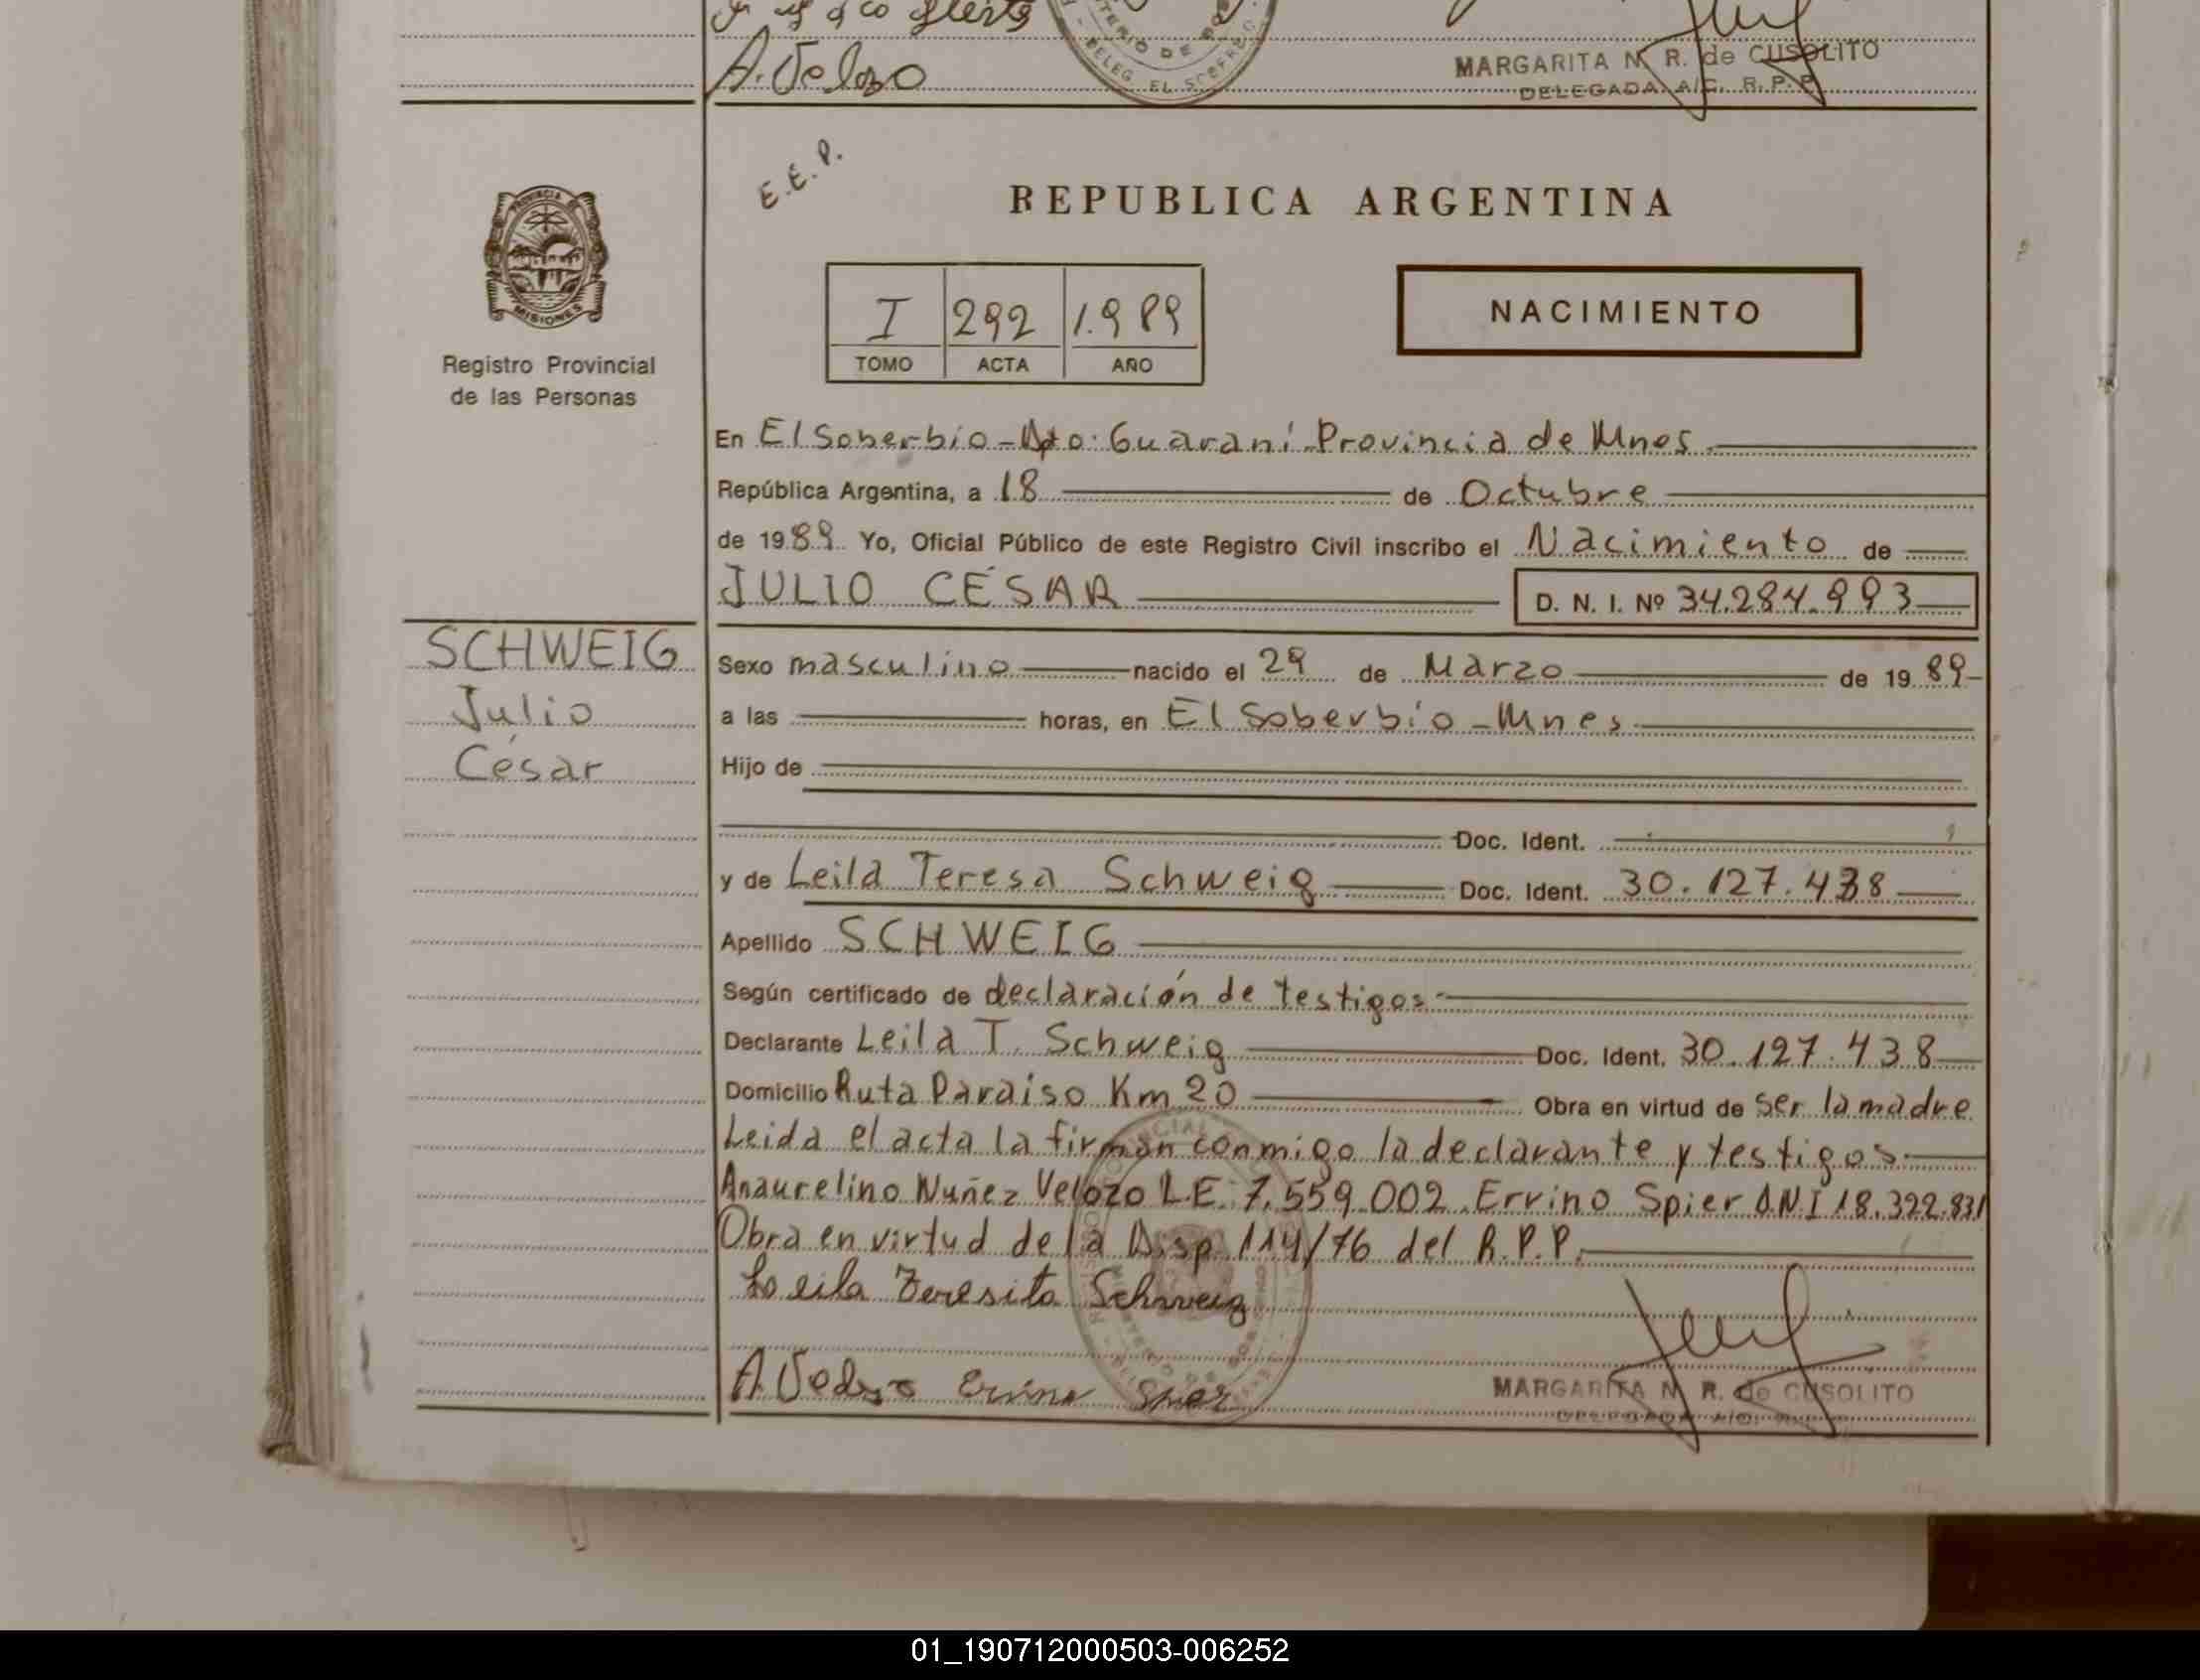 A. Velozo
MARGARITA N. R. de CUSOLITO
DELEGADA A/C. R.P.P.
E.E.P.
REPUBLICA ARGENTINA
PROVINCIA DE
MISIONES
I 292 1.989
TOMO ACTA AÑO
NACIMIENTO
Registro Provincial
de las Personas
En El Soberbio - Dpto: Guaraní - Provincia de Mnes.
República Argentina, a 18 de Octubre
de 1989 Yo, Oficial Público de este Registro Civil inscribo el Nacimiento de
JULIO CÉSAR D. N. I. Nº 34.284.993
SCHWEIG
Julio
César
Sexo masculino nacido el 29 de Marzo de 1989
a las horas, en El Soberbio - Mnes
Hijo de
Doc. Ident.
y de Leila Teresa Schweig Doc. Ident. 30.127.438
Apellido SCHWEIG
Según certificado de declaración de testigos.
Declarante Leila T. Schweig Doc. Ident. 30.127.438
Domicilio Ruta Paraiso Km 20 Obra en virtud de ser la madre
Leida el acta la firman conmigo la declarante y testigos.
Anaurelino Nuñez Velozo L.E. 7.559.002. Ervino Spier D.N.I 18.322.831
Obra en virtud de la Disp. 114/76 del R.P.P.
Leila Teresita Schweig
A. Velozo Ervino Spier
MARGARITA N. R. de CUSOLITO
DELEGADA A/C.
01_190712000503-006252